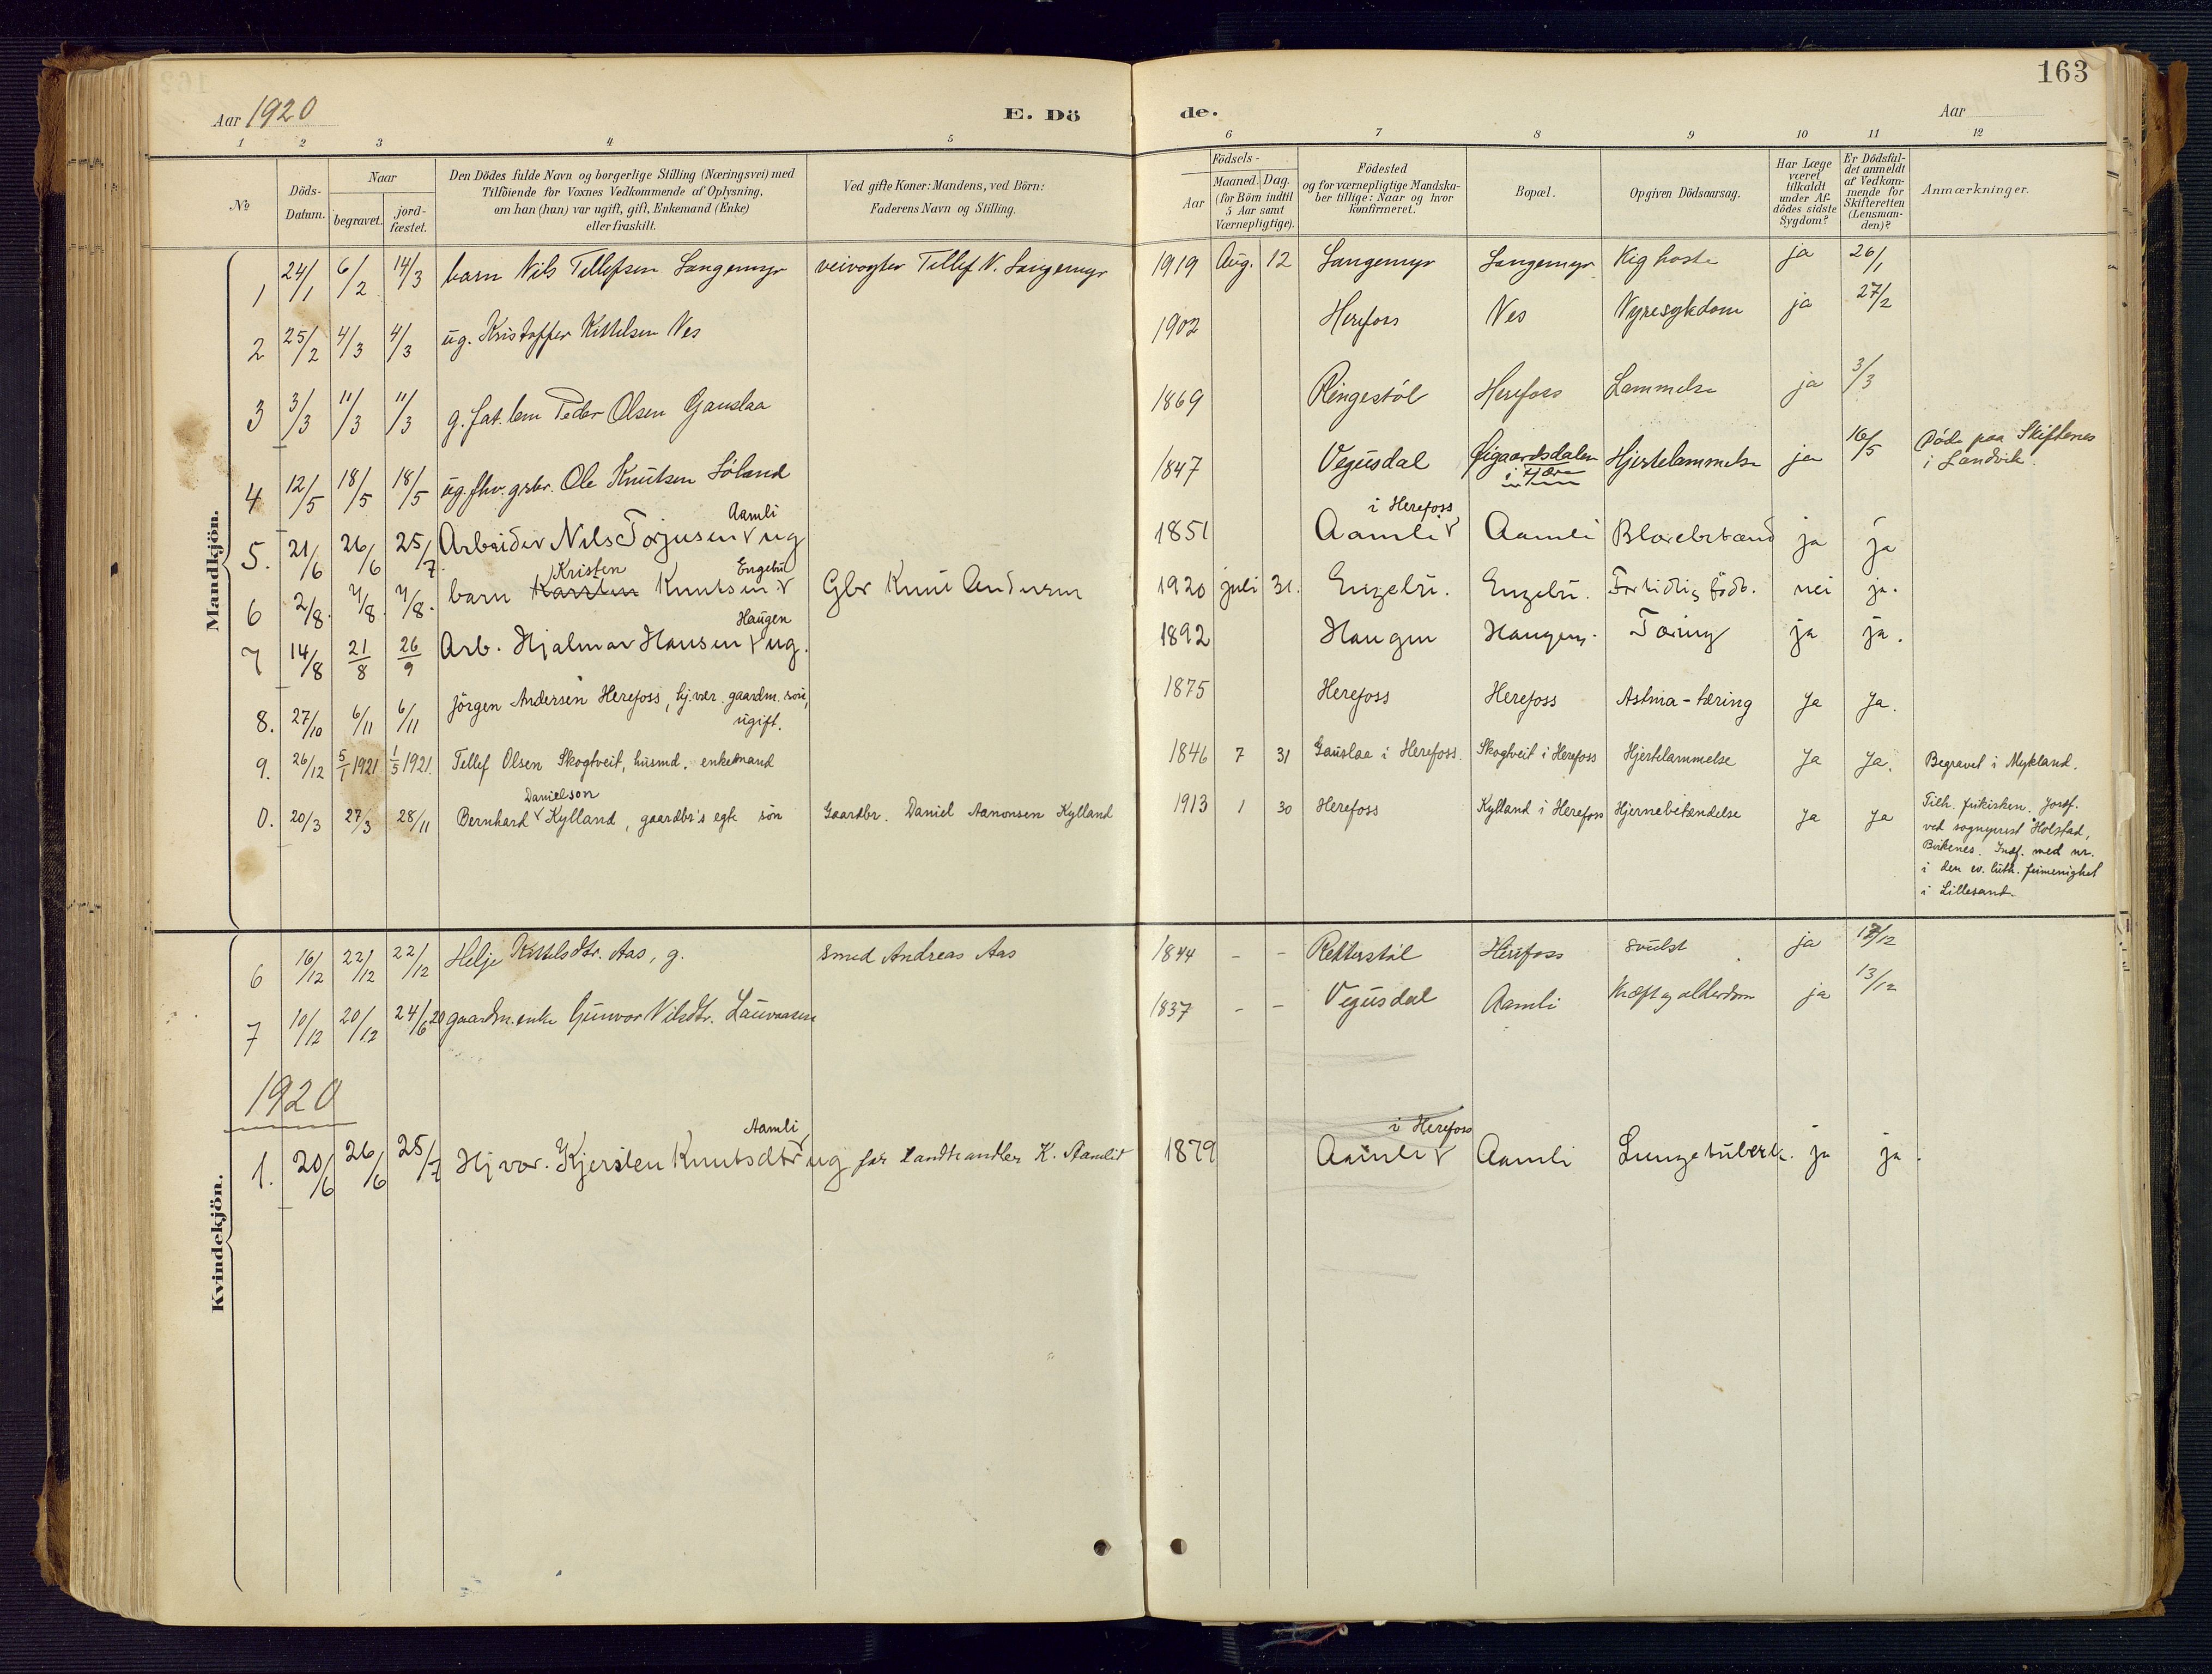 163
Aar 1920 E. Dö de. Aar
1 2 3 4 5 6 7 8 9 10 11 12
No
Döds-
Datum.
Naar
begravet.
jord-
fæstet.
Den Dödes fulde Navn og borgerlige Stilling (Næringsvei) med
Tilföiende for Voxnes Vedkommende af Oplysning,
om han (hun) var ugift, gift, Enkemand (Enke)
eller fraskilt.
Ved gifte Koner: Mandens, ved Börn:
Faderens Navn og Stilling.
Födsels-
Aar
Maaned. Dag.
(for Börn indtil
5 Aar samt
Værnepligtige).
Födested
og for værnepligtige Mandska-
ber tillige: Naar og hvor
konfirmeret.
Bopæl.
Opgiven Dödsaarsag.
Har Læge
været
tilkaldt
under Af-
dödes sidste
Sygdom?
Er Dödsfal-
det anmeldt
af Vedkom-
mende for
Skifteretten
(Lensman-
den)?
Anmærkninger.
Mandkjön.
1 24/1 6/2 14/3 barn Nils Tellefsen Langemyr veivogter Tellef N. Langemyr 1919 Aug. 12 Langemyr Langemyr Kighoste ja 26/1
2 25/2 4/3 4/3 ug. Kristoffer Kittelsen Ves 1902 Herefoss Ves Nyresykdom ja 27/2
3 3/3 11/3 11/3 g. fat. lem Peder Olsen Gauslaa 1869 Ringestöl Herefoss Lammelse ja 3/3
4 12/5 18/5 18/5 ug. fhv. grbr. Ole Knutsen Föland 1847 Vegusdal Øigaardsdalen Hjertelammelse ja 16/5 Döde paa Skiftenes
i Landvik.
Aamli i Herefoss
5. 21/6 26/6 25/7 Arbeider Nils Torjusen ug 1851 Aamli Aamli ja ja
Kristen Engebu
6 2/8. 7/8. 7/8. barn Karsten Knutsen Gbr Knut Andersen 1920 juli 31. Engebu. Engebu. Fortidlig födt. nei ja.
Haugen
7 14/8 21/8 26/9 Arb. Hjalmar Hansen ug. 1892 Haugen Haugen. Tæring ja ja.
8. 27/10 6/11 6/11 Jörgen Andersen Herefoss, hj.vær. gaardm. sön, 1875 Herefoss Herefoss Astma-tæring Ja Ja.
ugift.
9. 26/12 5/1 1921 1/5 1921. Tellef Olsen Skogtveit, husmd. enkemand 1846 7 31 Gauslaa i Herefoss. Skogtveit i Herefoss Hjertelammelse Ja Ja. Begravet i Mykland.
Danielson
0. 20/3 27/3 28/11 Bernhard Kylland, gaardbr's egte sön Gaardbr. Daniel Aanonsen Kylland 1913 1 30 Herefoss Kylland i Herefoss Hjernebetændelse Ja Ja Tilh. frikirken. Jordf.
ved sogneprest Holstad,
Birkenes. Indf. med nr.
i den ev. luth. frimenighet
i Lillesand.
Kvindekjön.
6 16/12 22/12 22/12 Helje Kittelsdtr. Aas, g. smed Andreas Aas 1844 - - Retterstöl Herefoss svulst ja 17/12
7 10/12 20/12 24/6 20 gaardm. enke Gunvor Nilsdtr. Lauvaasen 1837 - - Vegusdal Aamli Kræft og alderdom ja 13/12
1920
Aamli i Herefoss
1. 20/6 26/6 25/7 Hj vær. Kjersten Knutsdtr ug far landhandler K. Aamli 1879 Aamli Aamli Lungetuberk. ja ja.